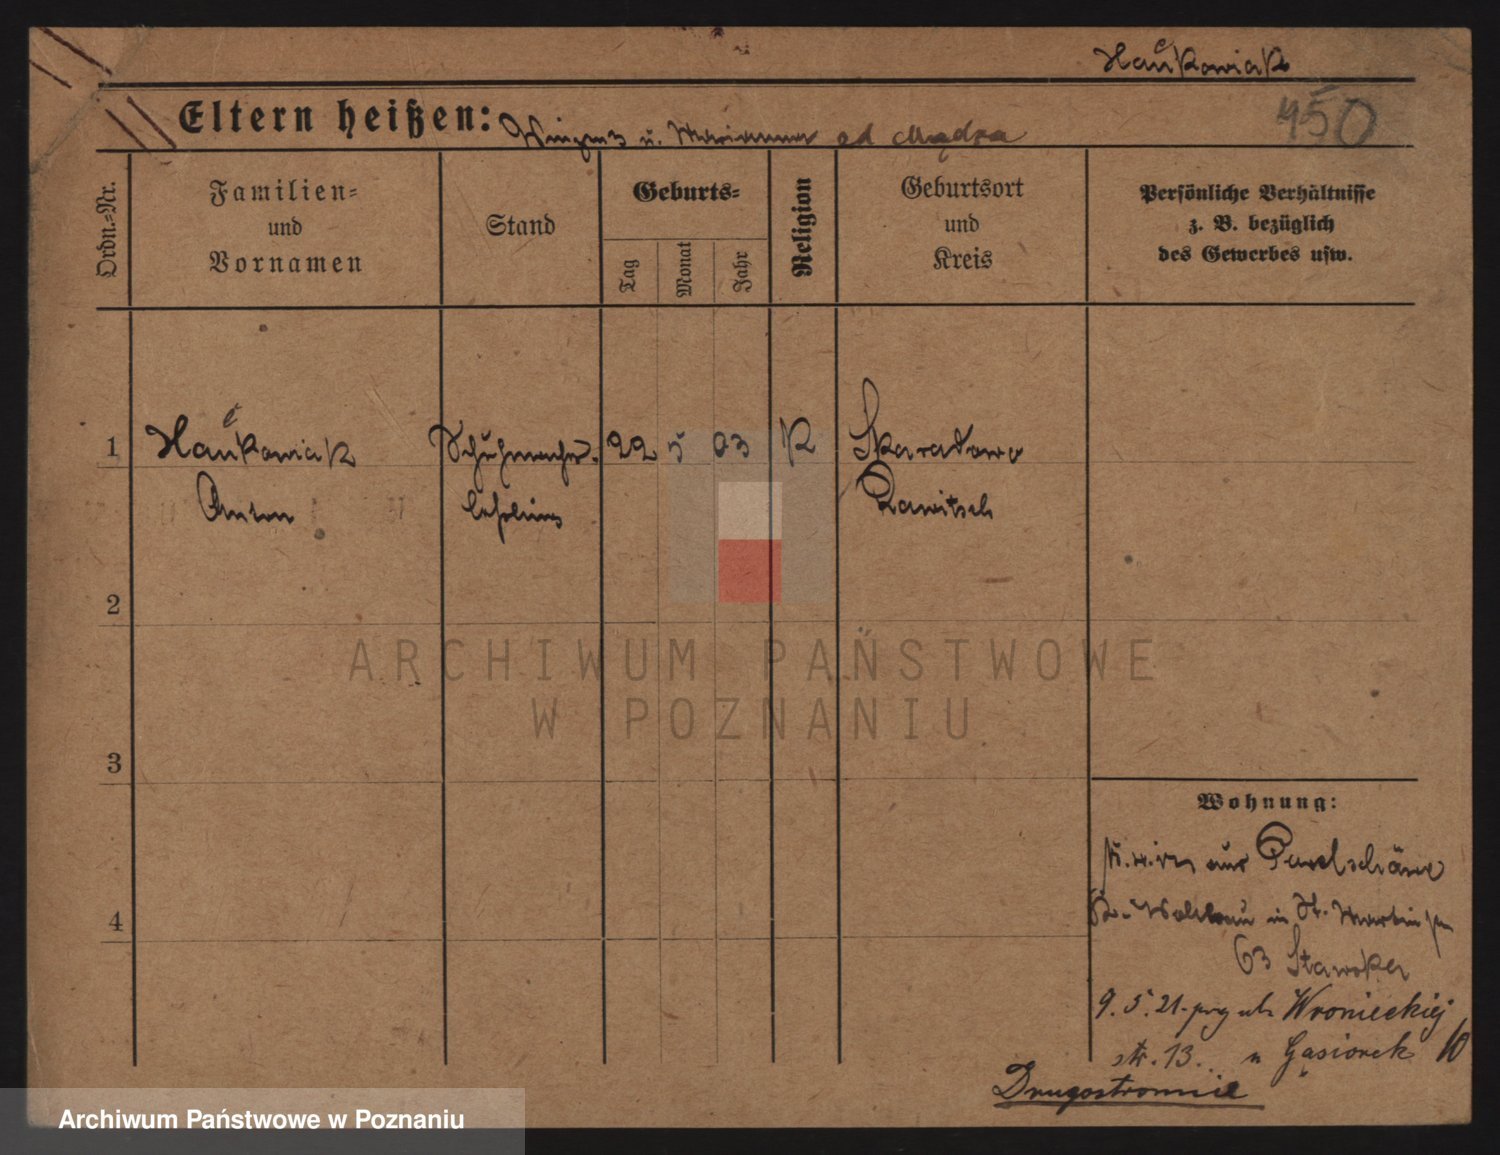 Haŭkowiak
450
Eltern heißen: u. Marianna Mądra
Ordn.-Nr.
Familien-
und
Vornamen
Stand
Geburts-
Tag
Monat
Jahr
Religion
Geburtsort
und
Kreis
Persönliche Verhältnisse
z. B. bezüglich
des Gewerbes usw.
1
Haŭkowiak
Anton
Schuhmacher-
lehrling
22 5 03 K
Skaradowo
Rawitsch
2
3
4
Wohnung:
aus
in St. Martinstr
63 Stawska
9.5.21. Wronieckiej
str. 13. u Gąsiorek
Drugostronnie
ARCHIWUM PAŃSTWOWE
W POZNANIU
Archiwum Państwowe w Poznaniu